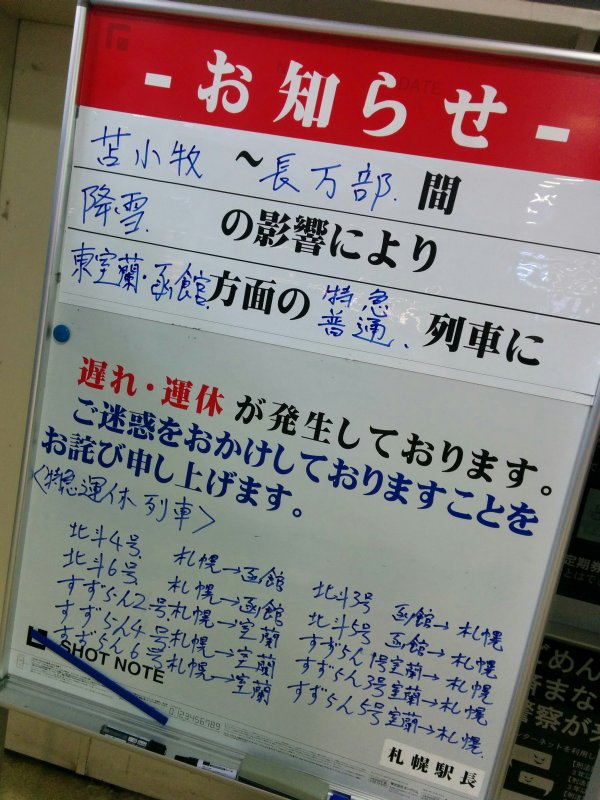 - お知らせ -
苫小牧 ~ 長万部 間
降雪 の影響により
東室蘭・函館 方面の 特急 普通 列車に
遅れ・運休が発生しております。
ご迷惑をおかけしておりますことを
お詫び申し上げます。
<特急運休列車>
北斗4号 札幌→函館
北斗6号 札幌→函館
すずらん2号 札幌→室蘭
すずらん4号 札幌→室蘭
すずらん6号 札幌→室蘭
北斗3号 函館→札幌
北斗5号 函館→札幌
すずらん1号 室蘭→札幌
すずらん3号 室蘭→札幌
すずらん5号 室蘭→札幌
SHOT NOTE
0123456789
札幌駅長
定期券
ごめん
済まな
警察が